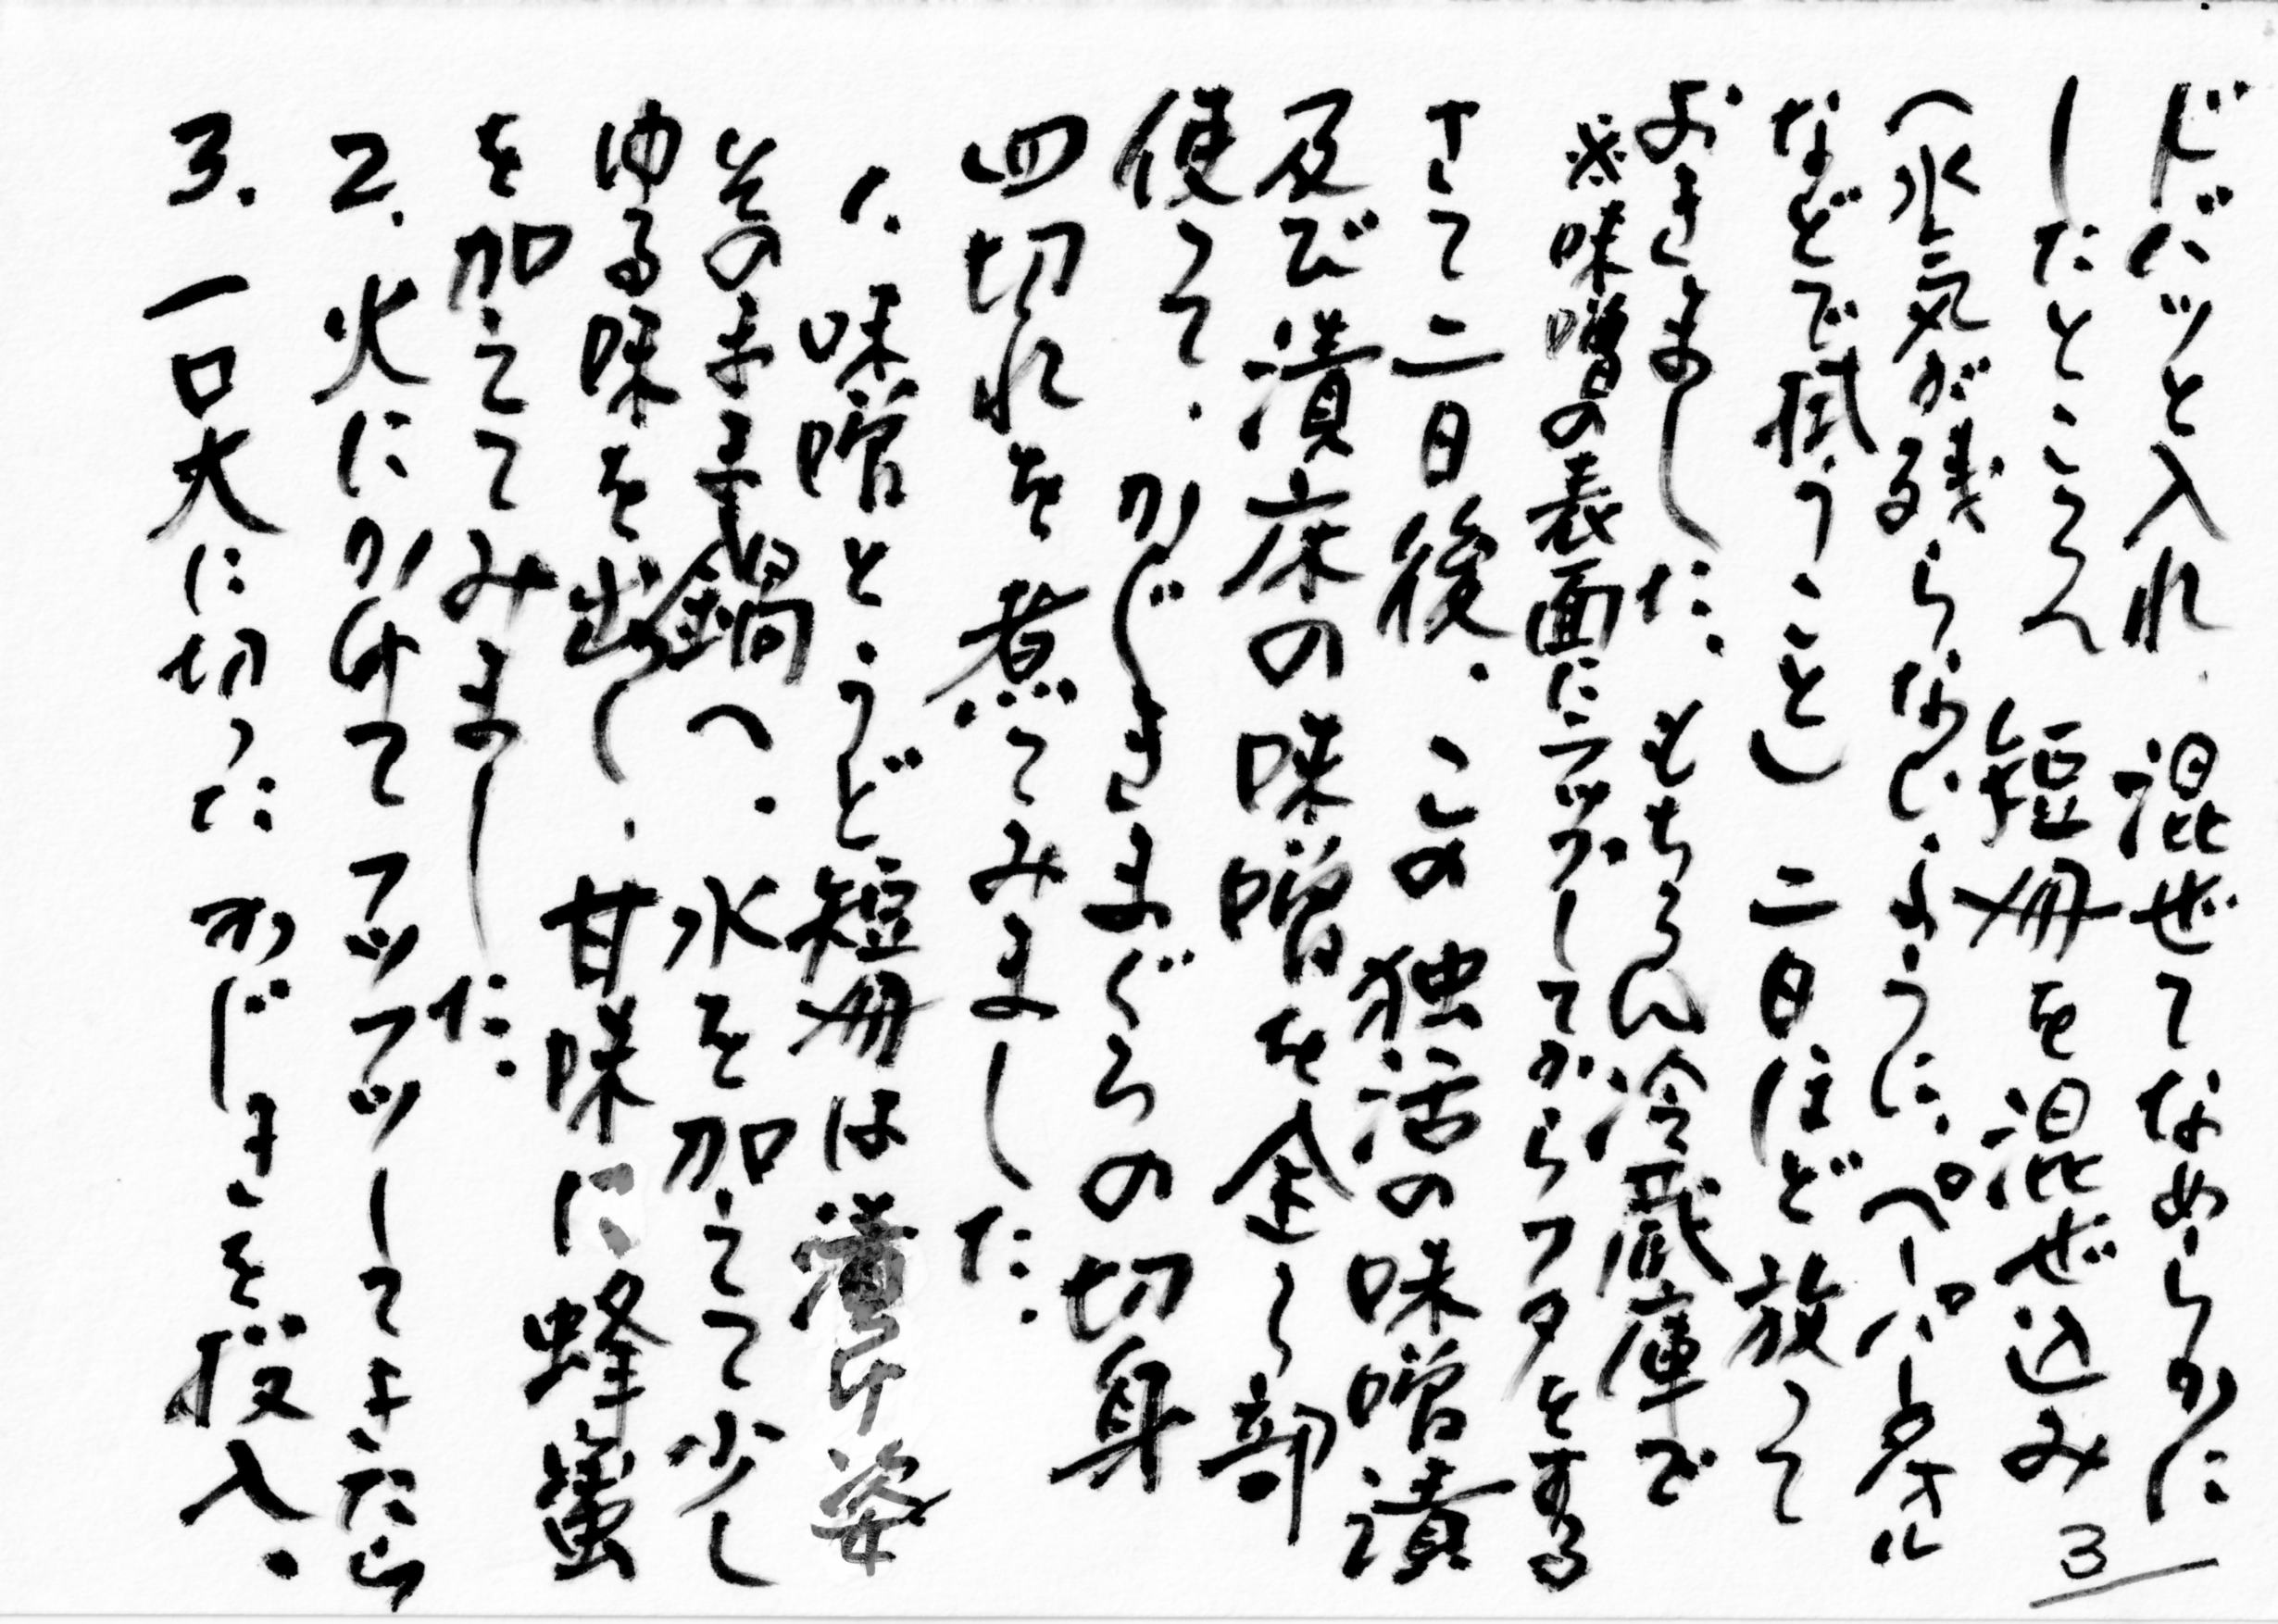 どバッと入れ、混ぜてなめらかに
したところへ 短冊を混ぜ込み
（水気が残らないように、ペーパータオル
などで拭うこと） 二日ほど放って
おきました。もちろん冷蔵庫で
※味噌の表面にラップしてからフタをする
さて二日後、この独活の味噌漬
及び漬床の味噌を全部
使って、かじきまぐろの切身
四切れを煮てみました。
1. 味噌とうど短冊は漬け姿
そのまま鍋へ、水を加えて少し
ゆる味を出し、甘味に蜂蜜
を加えてみました。
2. 火にかけてフツフツしてきたら
3. 一口大に切った かじきを投入。
3